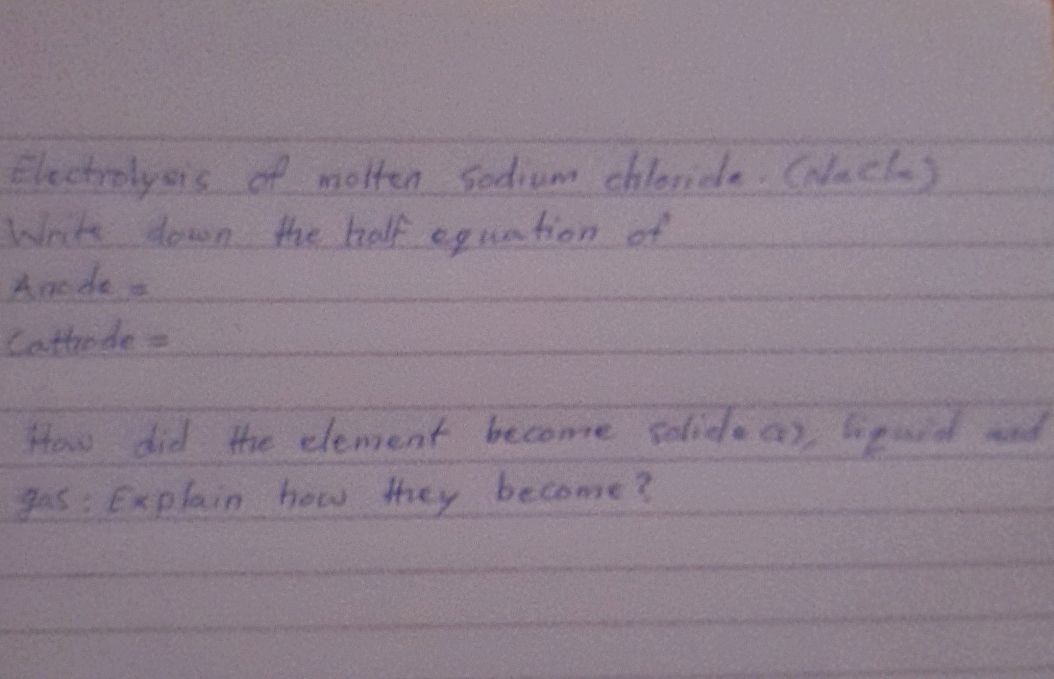 Electrolysis of molten Sodium chloride. (Nacl)
Write down the half equation of
Anode =
Cathode =
How did the element become solid (s), liquid and
gas: Explain how they become?